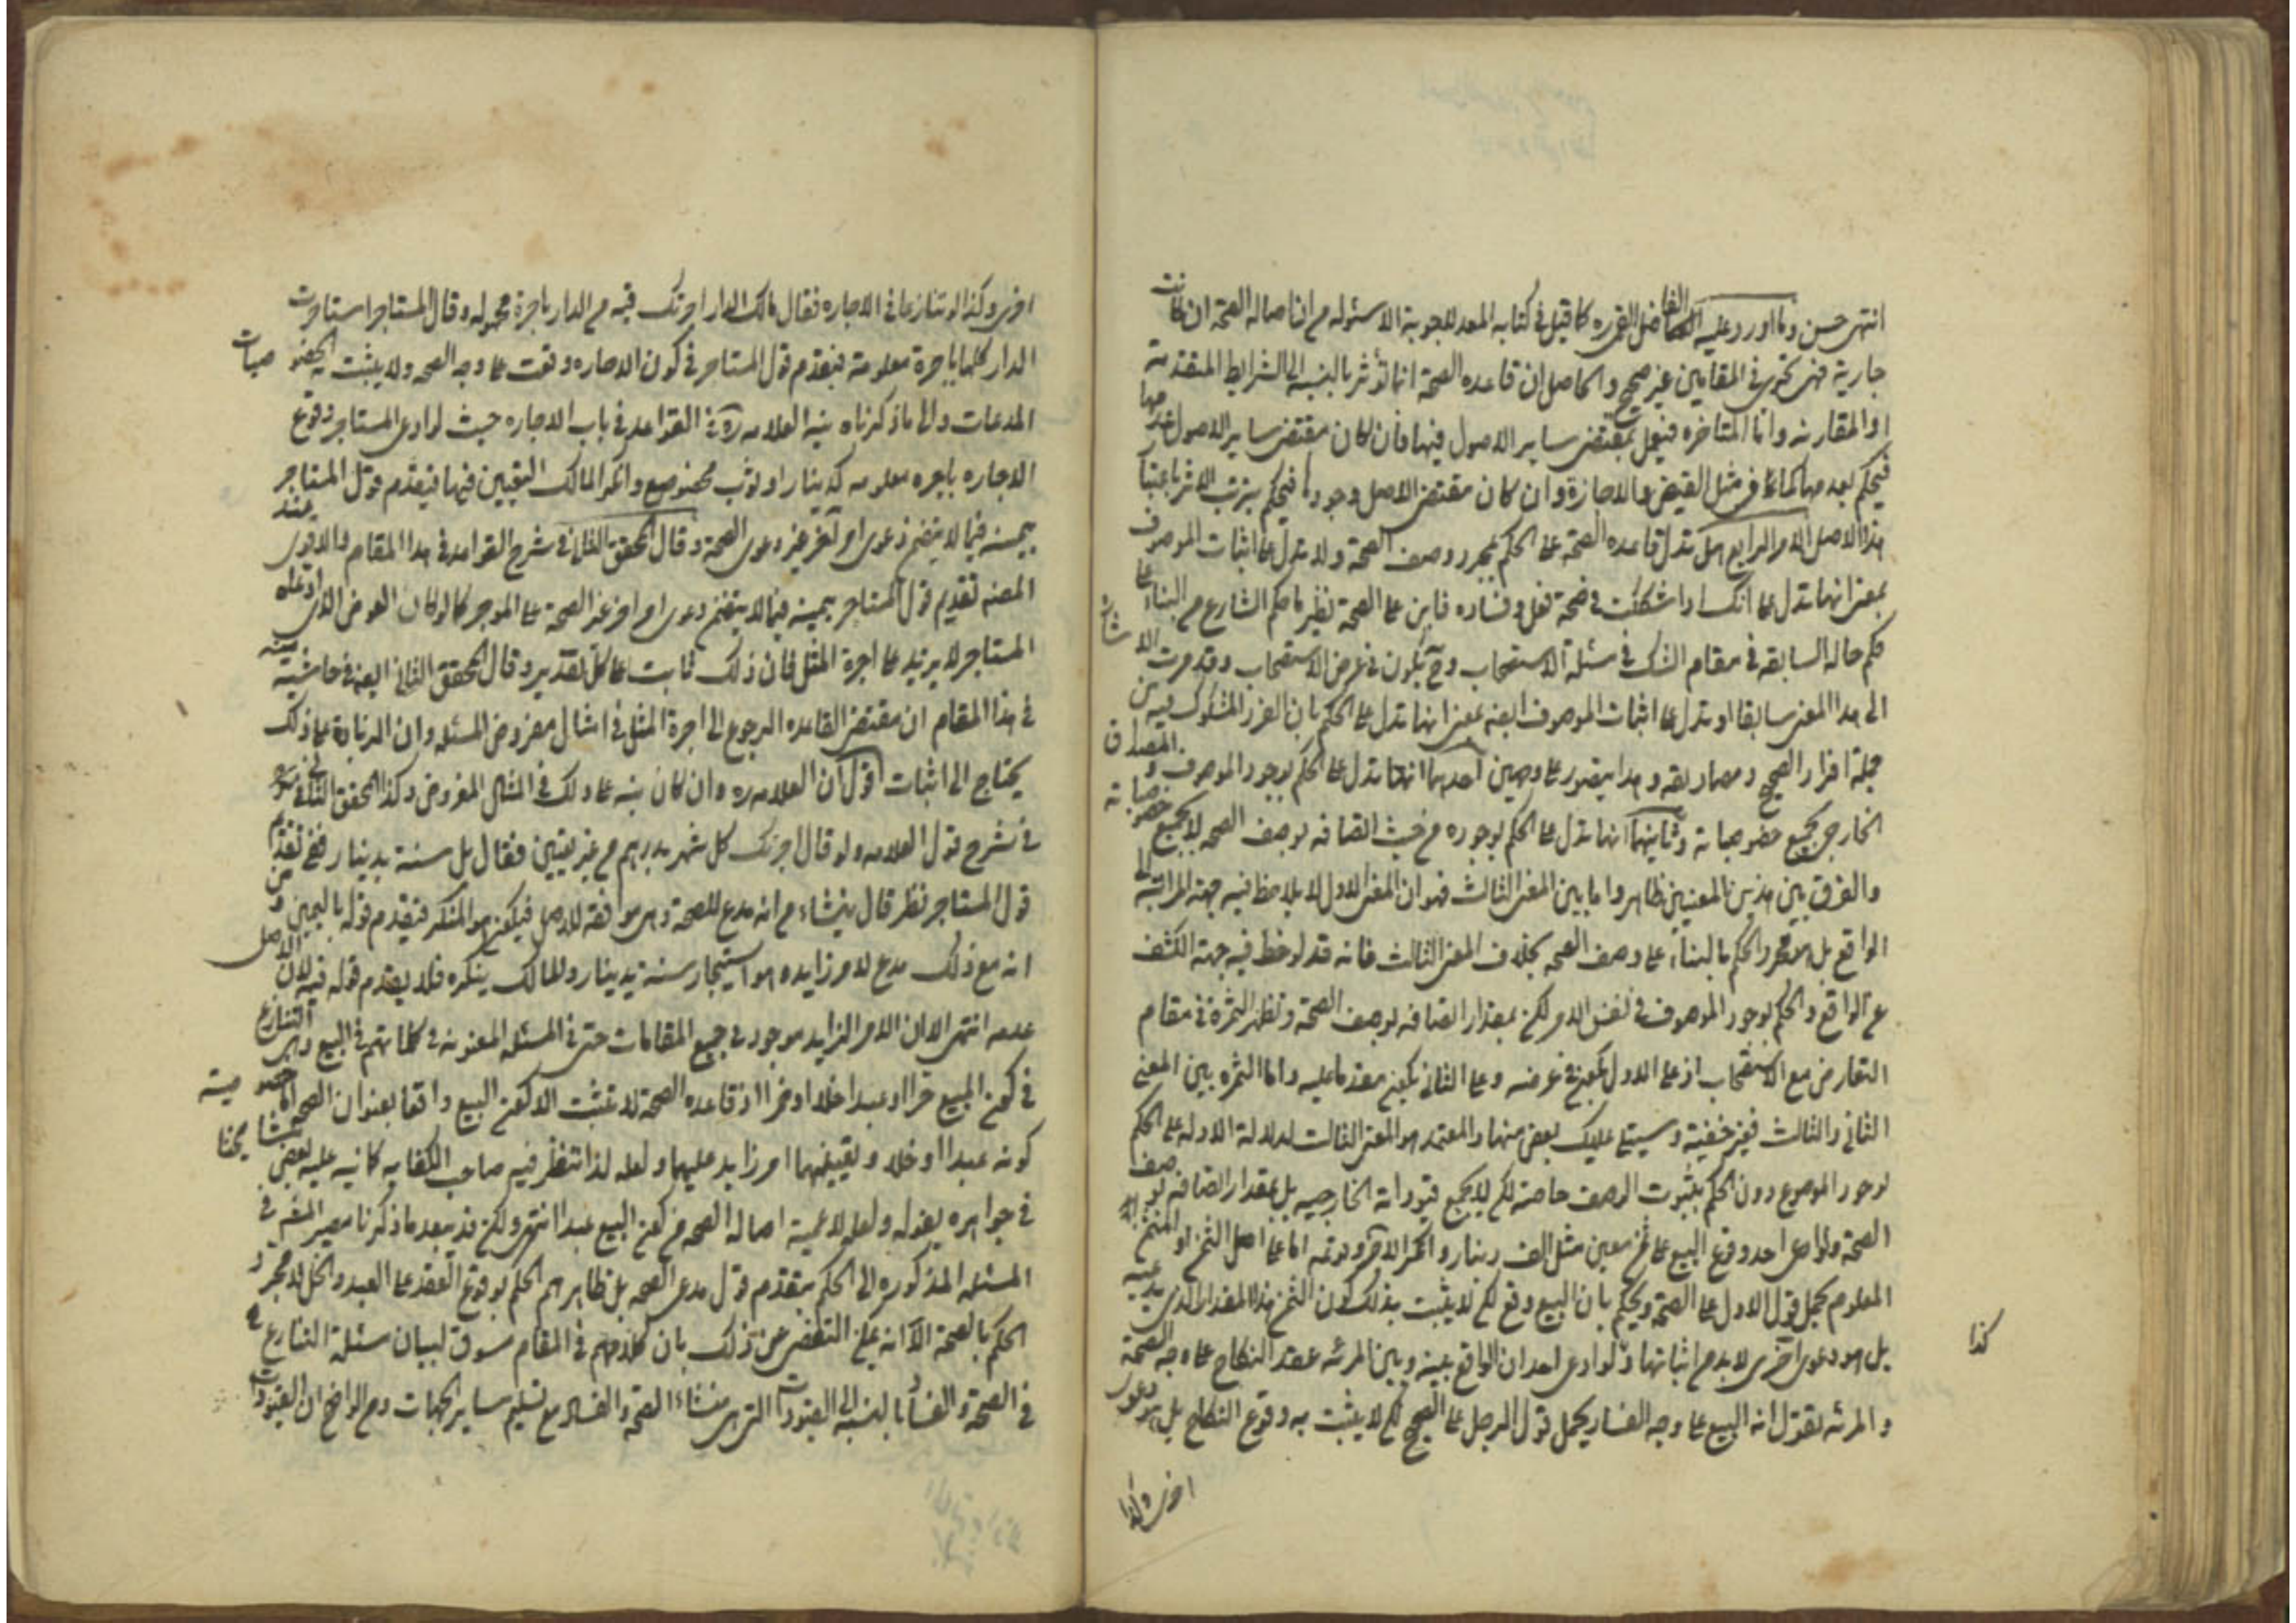 انتهى حسن وما اورد عليه الفاضل القمى ره كما قيل فى كتابه المعد للاجوبة الاسئوله من ان اصالة الصحة ان كانت
جارية فهى تجرى فى المقامين غير صحيح والحاصل ان قاعده الصحة انما تؤثر بالنسبة الى الشرايط المتقدمة
او المقارنه واما المتاخره فيعمل بمقتضى ساير الاصول فيها فان كان مقتضى ساير الاصول عدمها
فيحكم بعدمها كما فى مثل القبض والاجازة وان كان مقتضى الاصل وجودها فيحكم بترتب الاثر باعتبار
هذا الاصل الامر الرابع هل تدل قاعده الصحة على الحكم بمجرد وصف الصحة ولا تدل على اثبات الموصوف
بمعنى انها تدل على انك اذا شككت فى صحة فعل وفساده فابن على الصحة نظير ما حكم الشارع من البناء على
حكم حاله السابقه فى مقام الشك فى مسئلة الاستصحاب وح يكون فى عرض الاستصحاب وقد مرت الاشارة
الى هذا المعنى سابقا او تدل على اثبات الموصوف ايضه بمعنى انها تدل على الحكم بان الفرد المشكوك فيه من
جملة افراد الصحيح ومصاديقه وهذا يتصور على وجهين احدهما انها تدل على الحكم بوجود الموصوف و المصداق
الخارجى بجميع خصوصياته وثانيهما انها تدل على الحكم بوجوده من حيث اتصافه بوصف الصحه لا بجميع خصوصياته
والفرق بين هذين المعنيين ظاهر واما بين المعنى الثالث فهو ان المعنى الاول لا يلاحظ فيه جهة المراتية الى
الواقع بل هو مجرد الحكم بالبناء على وصف الصحه بخلاف المعنى الثالث فانه قد لوحظ فيه جهة الكشف
عن الواقع والحكم بوجود الموصوف فى نفس الامر لكن بمقدار اتصافه بوصف الصحة وتظهر الثمرة فى مقام
التعارض مع الاستصحاب اذ على الاول يكون فى عرضه وعلى الثانى يكون مقدما عليه واما الثمره بين المعنى
الثانى والثالث فغير خفية وسيتلى عليك بعض منها والمعتمد هو المعنى الثالث لدلالة الادله على الحكم
بوجود الموضوع دون الحكم بثبوت الوصف خاصة لكن لا بجميع قيوداته الخارجيه بل بمقدار اتصافه بوصف
الصحة ولو ادعى احد وقوع البيع على ثمن معين مثل الف دينار وانكر الاخر وقوعه اما على اصل الثمن او الثمن الغير
المعلوم يحمل قول الاول على الصحة ويحكم بان البيع وقع لكن لا يثبت بذلك كون الثمن هذا المقدار الذى يدعيه
بل هو دعوى اخرى لا بد من اثباتها ولو ادعى احد ان الواقع بينه وبين المرئه عقد النكاح على وجه الصحة
والمرئه تقول انه البيع على وجه الفساد يحمل قول الرجل على الصحيح لكن لا يثبت به وقوع النكاح بل هو دعوى
اخرى وكذا
كذا
اخرى وكذا لو تنازعا فى الاجاره فقال مالك الدار اجرتك قبة من الدار باجرة مجهوله وقال المستاجر استاجرت
الدار كلها باجرة معلومة فيقدم قول المستاجر فى كون الاجاره وقعت على وجه الصحه ولا يثبت به الخصوصيات
المدعات والى ما ذكرناه ينبه العلامه ره فى القواعد فى باب الاجاره حيث لو ادعى المستاجر وقوع
الاجاره باجره معلومه كدينار او ثوب مخصوص وانكر المالك التعيين فيها فيقدم قول المستاجر
بيمينه فيما لا يتضمن دعوى امر اخر غير دعوى الصحة وقال المحقق الثانى فى شرح القواعد فى هذا المقام والاقوى عند
المصنه تقديم قول المستاجر بيمينه فيما لا يتضمن دعوى امر اخر غير الصحة على الموجر كما لو كان العوض الذى ادعاه
المستاجر لا يزيد على اجرة المثل فان ذلك ثابت على كل تقدير وقال المحقق الثانى ايضه فى حاشيته
فى هذا المقام ان مقتضى القاعده الرجوع الى اجرة المثل فى امثال مفروض المسئله وان الزيادة على ذلك
يحتاج الى اثبات اقول ان العلامه ره وان كان بنبه على ذلك فى المثال المفروض وكذا المحقق الثانى
فى شرح قول العلامه ولو قال اجرتك كل شهر بدرهم من غير تعيين فقال بل سنة بدينار ففى تقديم
قول المستاجر نظر قال ينشاء من انه مدع للصحة وهى موافقة للاصل فيكون هو المنكر فيقدم قوله باليمين ومن
انه مع ذلك مدع لامر زايد هو استيجار سنة بدينار والمالك ينكره فلا يقدم قوله فيه لان الاصل
عدمه انتهى الا ان الامر الزايد موجود فى جميع المقامات حتى فى المسئله المعنونه فى كلماتهم فى البيع وهى التنازع
فى كون المبيع حرا او عبدا خلا او خمرا اذ قاعده الصحة لا تثبت الا كون البيع واقعا بعنوان الصحه اما خصوصية
كونه عبدا او خلا وتعيينهما امر زايد عليهما ولعله لذا تنظر فيه صاحب الكفايه كما نبه عليه بعض مشايخنا
فى جواهره بقوله ولعله لا عمية اصاله الصحه من كون المبيع عبدا انتهى ولكن قد يبعد ما ذكرنا مصير المعظم فى
المسئله المذكوره الى الحكم بتقدم قول مدعى الصحه بل ظاهرهم الحكم بوقوع العقد على العبد والخل لا مجرد
الحكم بالصحة الا انه يمكن التفصى عن ذلك بان كلامهم فى المقام مسوق لبيان مسئلة التنازع
فى الصحة والفساد بالنسبة الى القيودات التى هى منشاء الصحة والفساد مع تسليم ساير الجهات ومن الواضح ان القيودات